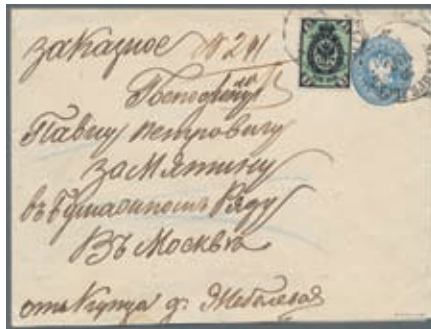 заказное № 241
Господину
Павлу Петровичу
Замятину
въ Ряду
Въ Москвѣ
отъ Купца